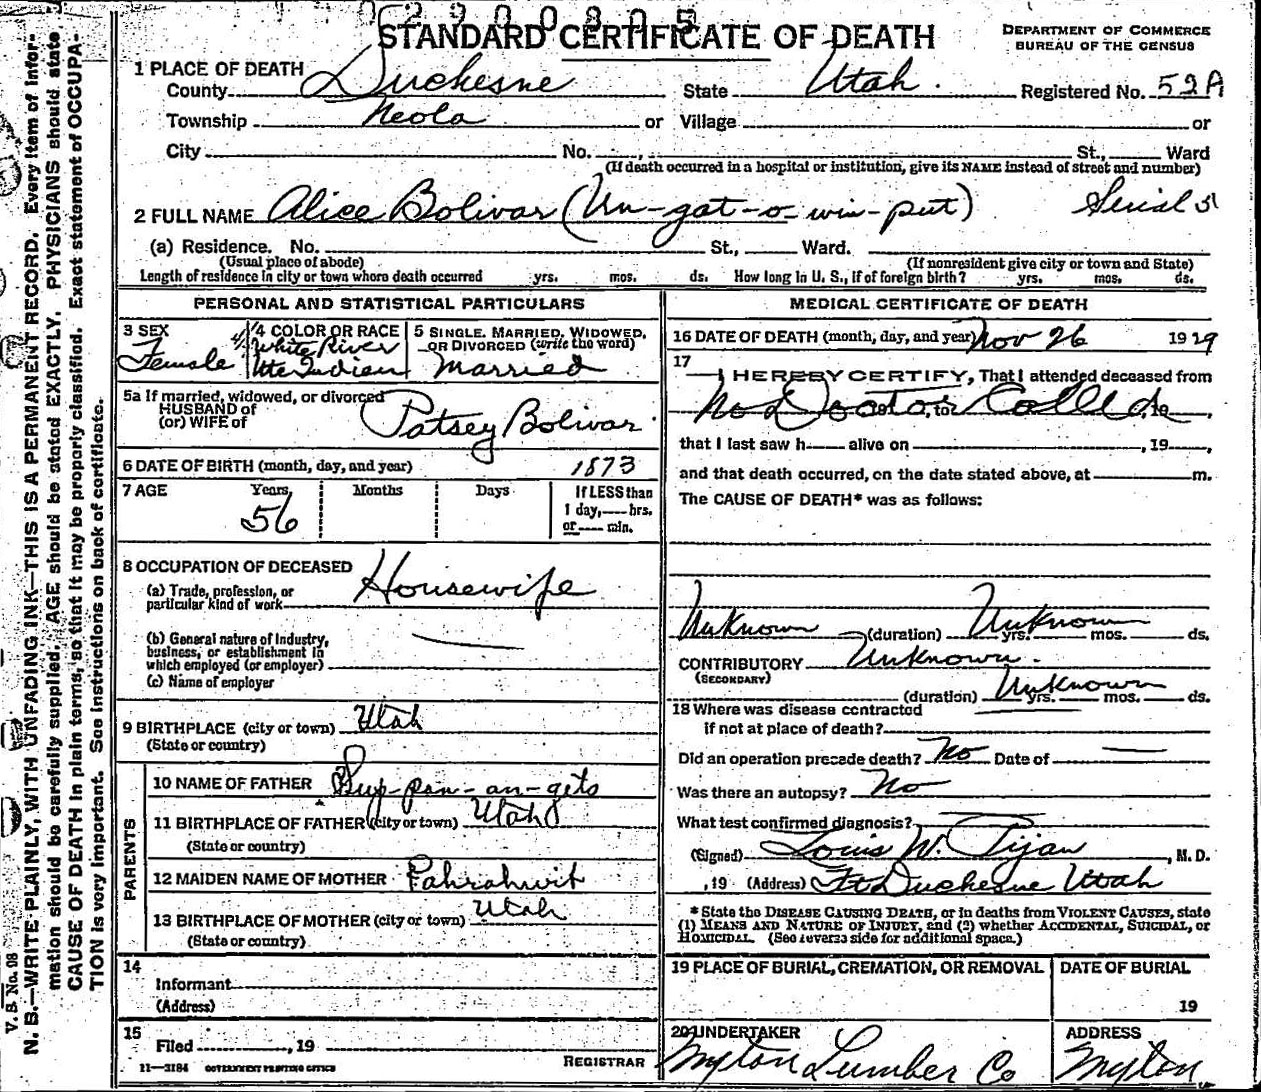 2900805
STANDARD CERTIFICATE OF DEATH
DEPARTMENT OF COMMERCE
BUREAU OF THE CENSUS
1 PLACE OF DEATH
County Duchesne State Utah. Registered No. 52A
Township Neola or Village or
City No. , St., Ward
(If death occurred in a hospital or institution, give its NAME instead of street and number)
2 FULL NAME Alice Bolivar (Un-gat-o-win-put) Serial 51
(a) Residence. No. St., Ward.
(Usual place of abode) (If nonresident give city or town and State)
Length of residence in city or town where death occurred yrs. mos. ds. How long in U. S., if of foreign birth? yrs. mos. ds.
PERSONAL AND STATISTICAL PARTICULARS
3 SEX
Female
4/4
4 COLOR OR RACE
White River
Ute Indian
5 SINGLE, MARRIED, WIDOWED,
OR DIVORCED (write the word)
Married
5a If married, widowed, or divorced
HUSBAND of
(or) WIFE of Patsey Bolivar
6 DATE OF BIRTH (month, day, and year) 1873
7 AGE Years Months Days If LESS than
56 1 day, hrs.
or min.
8 OCCUPATION OF DECEASED
(a) Trade, profession, or
particular kind of work Housewife
(b) General nature of industry,
business, or establishment in
which employed (or employer)
(c) Name of employer
9 BIRTHPLACE (city or town) Utah
(State or country)
PARENTS
10 NAME OF FATHER Sup-pan-an-gets
11 BIRTHPLACE OF FATHER (city or town) Utah
(State or country)
12 MAIDEN NAME OF MOTHER Pahrahwit
13 BIRTHPLACE OF MOTHER (city or town) Utah
(State or country)
14
Informant
(Address)
15
Filed , 19
REGISTRAR
11—3184 GOVERNMENT PRINTING OFFICE
MEDICAL CERTIFICATE OF DEATH
16 DATE OF DEATH (month, day, and year) Nov 26 1929
17
I HEREBY CERTIFY, That I attended deceased from
No Doctor Called
that I last saw h alive on , 19 ,
and that death occurred, on the date stated above, at m.
The CAUSE OF DEATH* was as follows:
Unknown (duration) Unknown yrs. mos. ds.
CONTRIBUTORY Unknown.
(SECONDARY)
(duration) Unknown yrs. mos. ds.
18 Where was disease contracted
if not at place of death?
Did an operation precede death? No Date of
Was there an autopsy? No
What test confirmed diagnosis?
(Signed) Louis W. Pijan, M. D.
, 19 (Address) Ft Duchesne Utah
* State the DISEASE CAUSING DEATH, or in deaths from VIOLENT CAUSES, state
(1) MEANS AND NATURE OF INJURY, and (2) whether ACCIDENTAL, SUICIDAL, or
HOMICIDAL. (See reverse side for additional space.)
19 PLACE OF BURIAL, CREMATION, OR REMOVAL DATE OF BURIAL
19
20 UNDERTAKER ADDRESS
Myton Lumber Co Myton
V. S. No. 98
N. B.—WRITE PLAINLY, WITH UNFADING INK—THIS IS A PERMANENT RECORD. Every item of infor-
mation should be carefully supplied. AGE should be stated EXACTLY. PHYSICIANS should state
CAUSE OF DEATH in plain terms, so that it may be properly classified. Exact statement of OCCUPA-
TION is very important. See instructions on back of certificate.